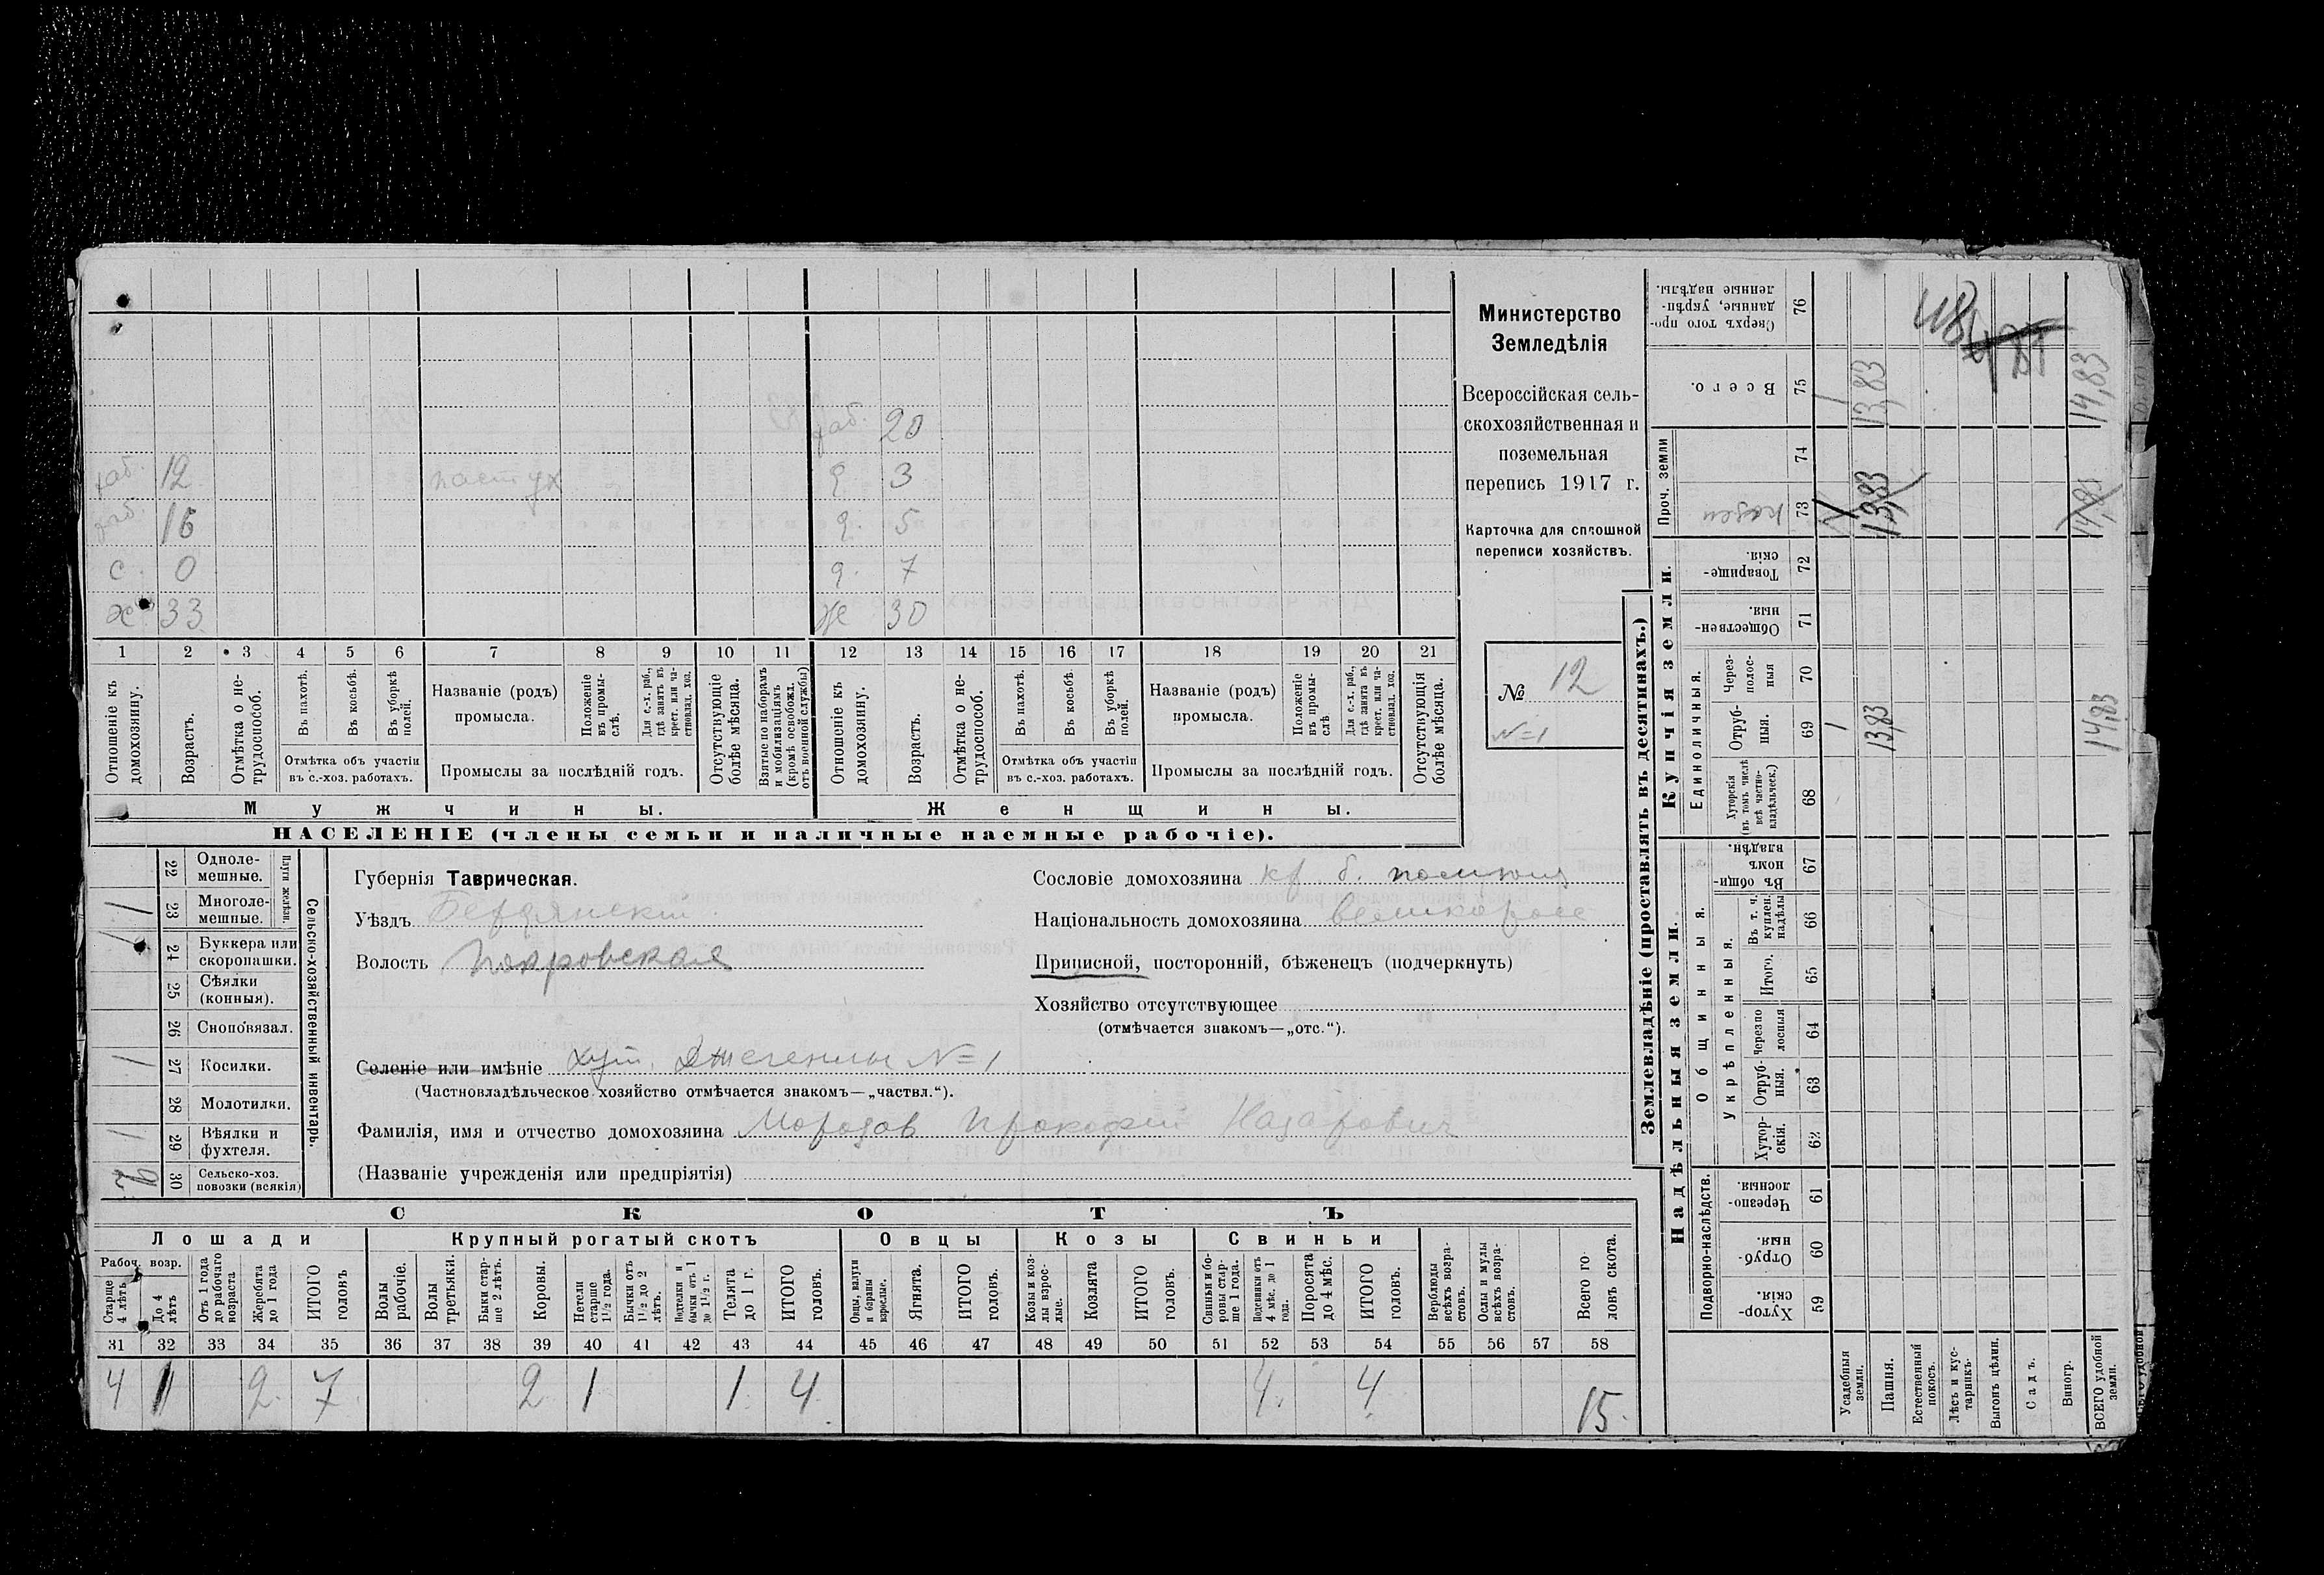 Министерство
Земледѣлія
Всероссійская сель-
скохозяйственная и
поземельная
перепись 1917 г.
Карточка для сплошной
переписи хозяйствъ.
№ 12
№ 1
раб. 20
раб. 12 пастух д. 3
раб. 16 д. 5
с. 0 д. 7
х 33 ж 30
1 2 3 4 5 6 7 8 9 10 11 12 13 14 15 16 17 18 19 20 21
Отношеніе къ домохозяину.
Возрастъ.
Отмѣтка о не-трудоспособ.
Въ пахотѣ.
Въ косьбѣ.
Въ уборкѣ полей.
Отмѣтка объ участіи въ с.-хоз. работахъ.
Названіе (родъ) промысла.
Положеніе въ промы-слѣ.
Для с.-х. раб., гдѣ занятъ въ крест. или ча-стновлад. хоз.
Промыслы за послѣдній годъ.
Отсутствующіе болѣе мѣсяца.
Взятые по наборамъ и мобилизаціямъ (кромѣ освобожд. отъ военной службы)
Отношеніе къ домохозяину.
Возрастъ.
Отмѣтка о не-трудоспособ.
Въ пахотѣ.
Въ косьбѣ.
Въ уборкѣ полей.
Отмѣтка объ участіи въ с.-хоз. работахъ.
Названіе (родъ) промысла.
Положеніе въ промы-слѣ
Для с.-х. раб., гдѣ занята въ крест. или ча-стновлад. хоз.
Промыслы за послѣдній годъ.
Отсутствующія болѣе мѣсяца.
Мужчины. Женщины.
НАСЕЛЕНІЕ (члены семьи и наличные наемные рабочіе).
Сельско-хозяйственный инвентарь.
Плуги желѣзн.
22 Одноле-мешные.
1 23 Многоле-мешные.
1 24 Буккера или скоропашки.
25 Сѣялки (конныя).
26 Сноповязал.
1 27 Косилки.
28 Молотилки.
1 29 Вѣялки и фухтеля.
30 Сельско-хоз. повозки (всякія)
Губернія Таврическая.
Уѣздъ Бердянскій
Волость Покровская
Селеніе или имѣніе хут. Джегенлы № 1
(Частновладѣльческое хозяйство отмѣчается знакомъ—„частвл.“).
Фамилія, имя и отчество домохозяина Морозов Прокофий Назарович
(Названіе учрежденія или предпріятія)
Сословіе домохозяина кр. б.
Національность домохозяина великоросс
Приписной, посторонній, бѣженецъ (подчеркнуть)
Хозяйство отсутствующее
(отмѣчается знакомъ—„отс.“).
СКОТЪ
Лошади Крупный рогатый скотъ Овцы Козы Свиньи
Рабоч. возр.
Старще 4 лѣтъ
До 4 лѣтъ
Отъ 1 года до рабочаго возраста
Жеребята до 1 года
ИТОГО головъ
Волы рабочіе.
Волы третьяки.
Быки стар-ше 2 лѣтъ.
Коровы.
Нетели старше 1½ года.
Бычки отъ 1½ до 2 лѣтъ.
Подтелки и бычки отъ 1 до 1½ г.
Телята до 1 г.
ИТОГО головъ.
Овцы, валухи и бараны взрослые.
Ягнята.
ИТОГО головъ.
Козы и коз-лы взрос-лые.
Козлята
ИТОГО головъ.
Свиньи и бо-ровы стар-ше 1 года.
Подсвинки отъ 4 мѣс. до 1 года.
Поросята до 4 мѣс.
ИТОГО головъ.
Верблюды всѣхъ возра-стовъ.
Ослы и мулы всѣхъ возра-стовъ.
Всего го-ловъ скота.
31 32 33 34 35 36 37 38 39 40 41 42 43 44 45 46 47 48 49 50 51 52 53 54 55 56 57 58
4 1 2 7 2 1 1 4 4 4 15
Землевладѣніе (проставлять въ десятинахъ.)
Надѣльныя земли. Купчія земли. Проч. земли
Подворно-наслѣдств. Общинныя. Укрѣпленныя. Единоличныя.
59 Хутор-скія.
60 Отруб-ныя.
61 Черезпо-лосныя.
62 Хутор-скія.
63 Отруб-ныя.
64 Черезпо-лосныя
65 Итого.
66 Въ т. ч. куплен. надѣлы
67 Въ общин-номъ владѣн.
68 Хуторскія (въ томъ числѣ всѣ частно-владѣльческ.)
69 Отруб-ныя. 1 13,83 14,83
70 Через-полос-ныя
71 Обществен-ныя.
72 Товарище-скія.
73 13,83 14,83
74
75 Всего. 1 13,83 14,83
76 Сверхъ того про-данные, укрѣп-ленные надѣлы.
Усадебныя земли.
Пашня.
Естественный покосъ.
Лѣсъ и кус-тарникъ.
Выгонъ цѣлин.
Садъ.
Виногр.
ВСЕГО удобной земли.